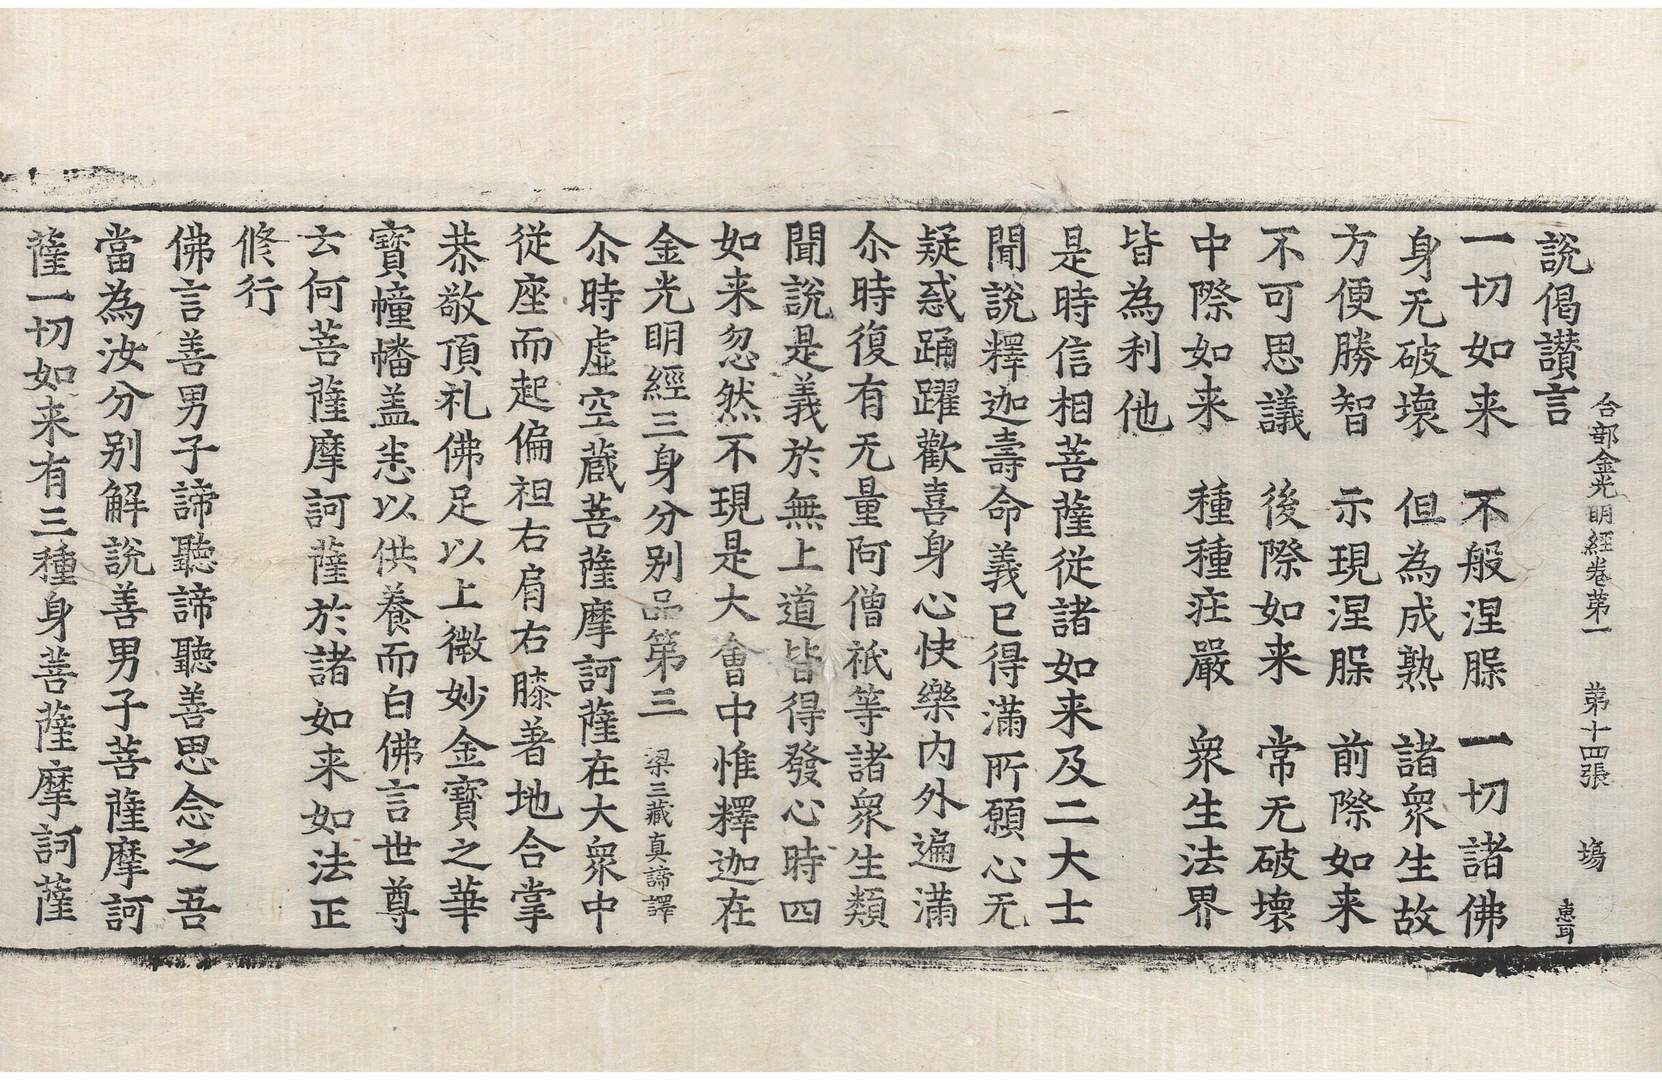 合部金光明經卷苐一 苐十四張 塲 惠耳
說偈讃言
一切如来 不般涅脲 一切諸佛
身无破壞 但為成熟 諸衆生故
方便勝智 示現涅脲 前際如来
不可思議 後際如来 常无破壞
中際如来 種種庄嚴 衆生法界
皆為利他
是時信相菩薩従諸如来及二大士
聞說釋迦壽命義已得滿所願心无
疑惑踊躍歡喜身心快樂内外遍滿
尒時復有无量阿僧祇等諸衆生類
聞說是義於無上道皆得發心時四
如来忽然不現是大會中惟釋迦在
金光明經三身分别品第三 梁三藏真諦譯
尒時虚空藏菩薩摩訶薩在大衆中
従座而起偏袒右肩右膝著地合掌
恭敬頂礼佛足以上微妙金寶之華
寶幢幡盖恚以供養而白佛言世尊
云何菩薩摩訶薩於諸如来如法正
修行
佛言善男子諦聽諦聽善思念之吾
當為汝分别解説善男子菩薩摩訶
薩一切如来有三種身菩薩摩訶薩